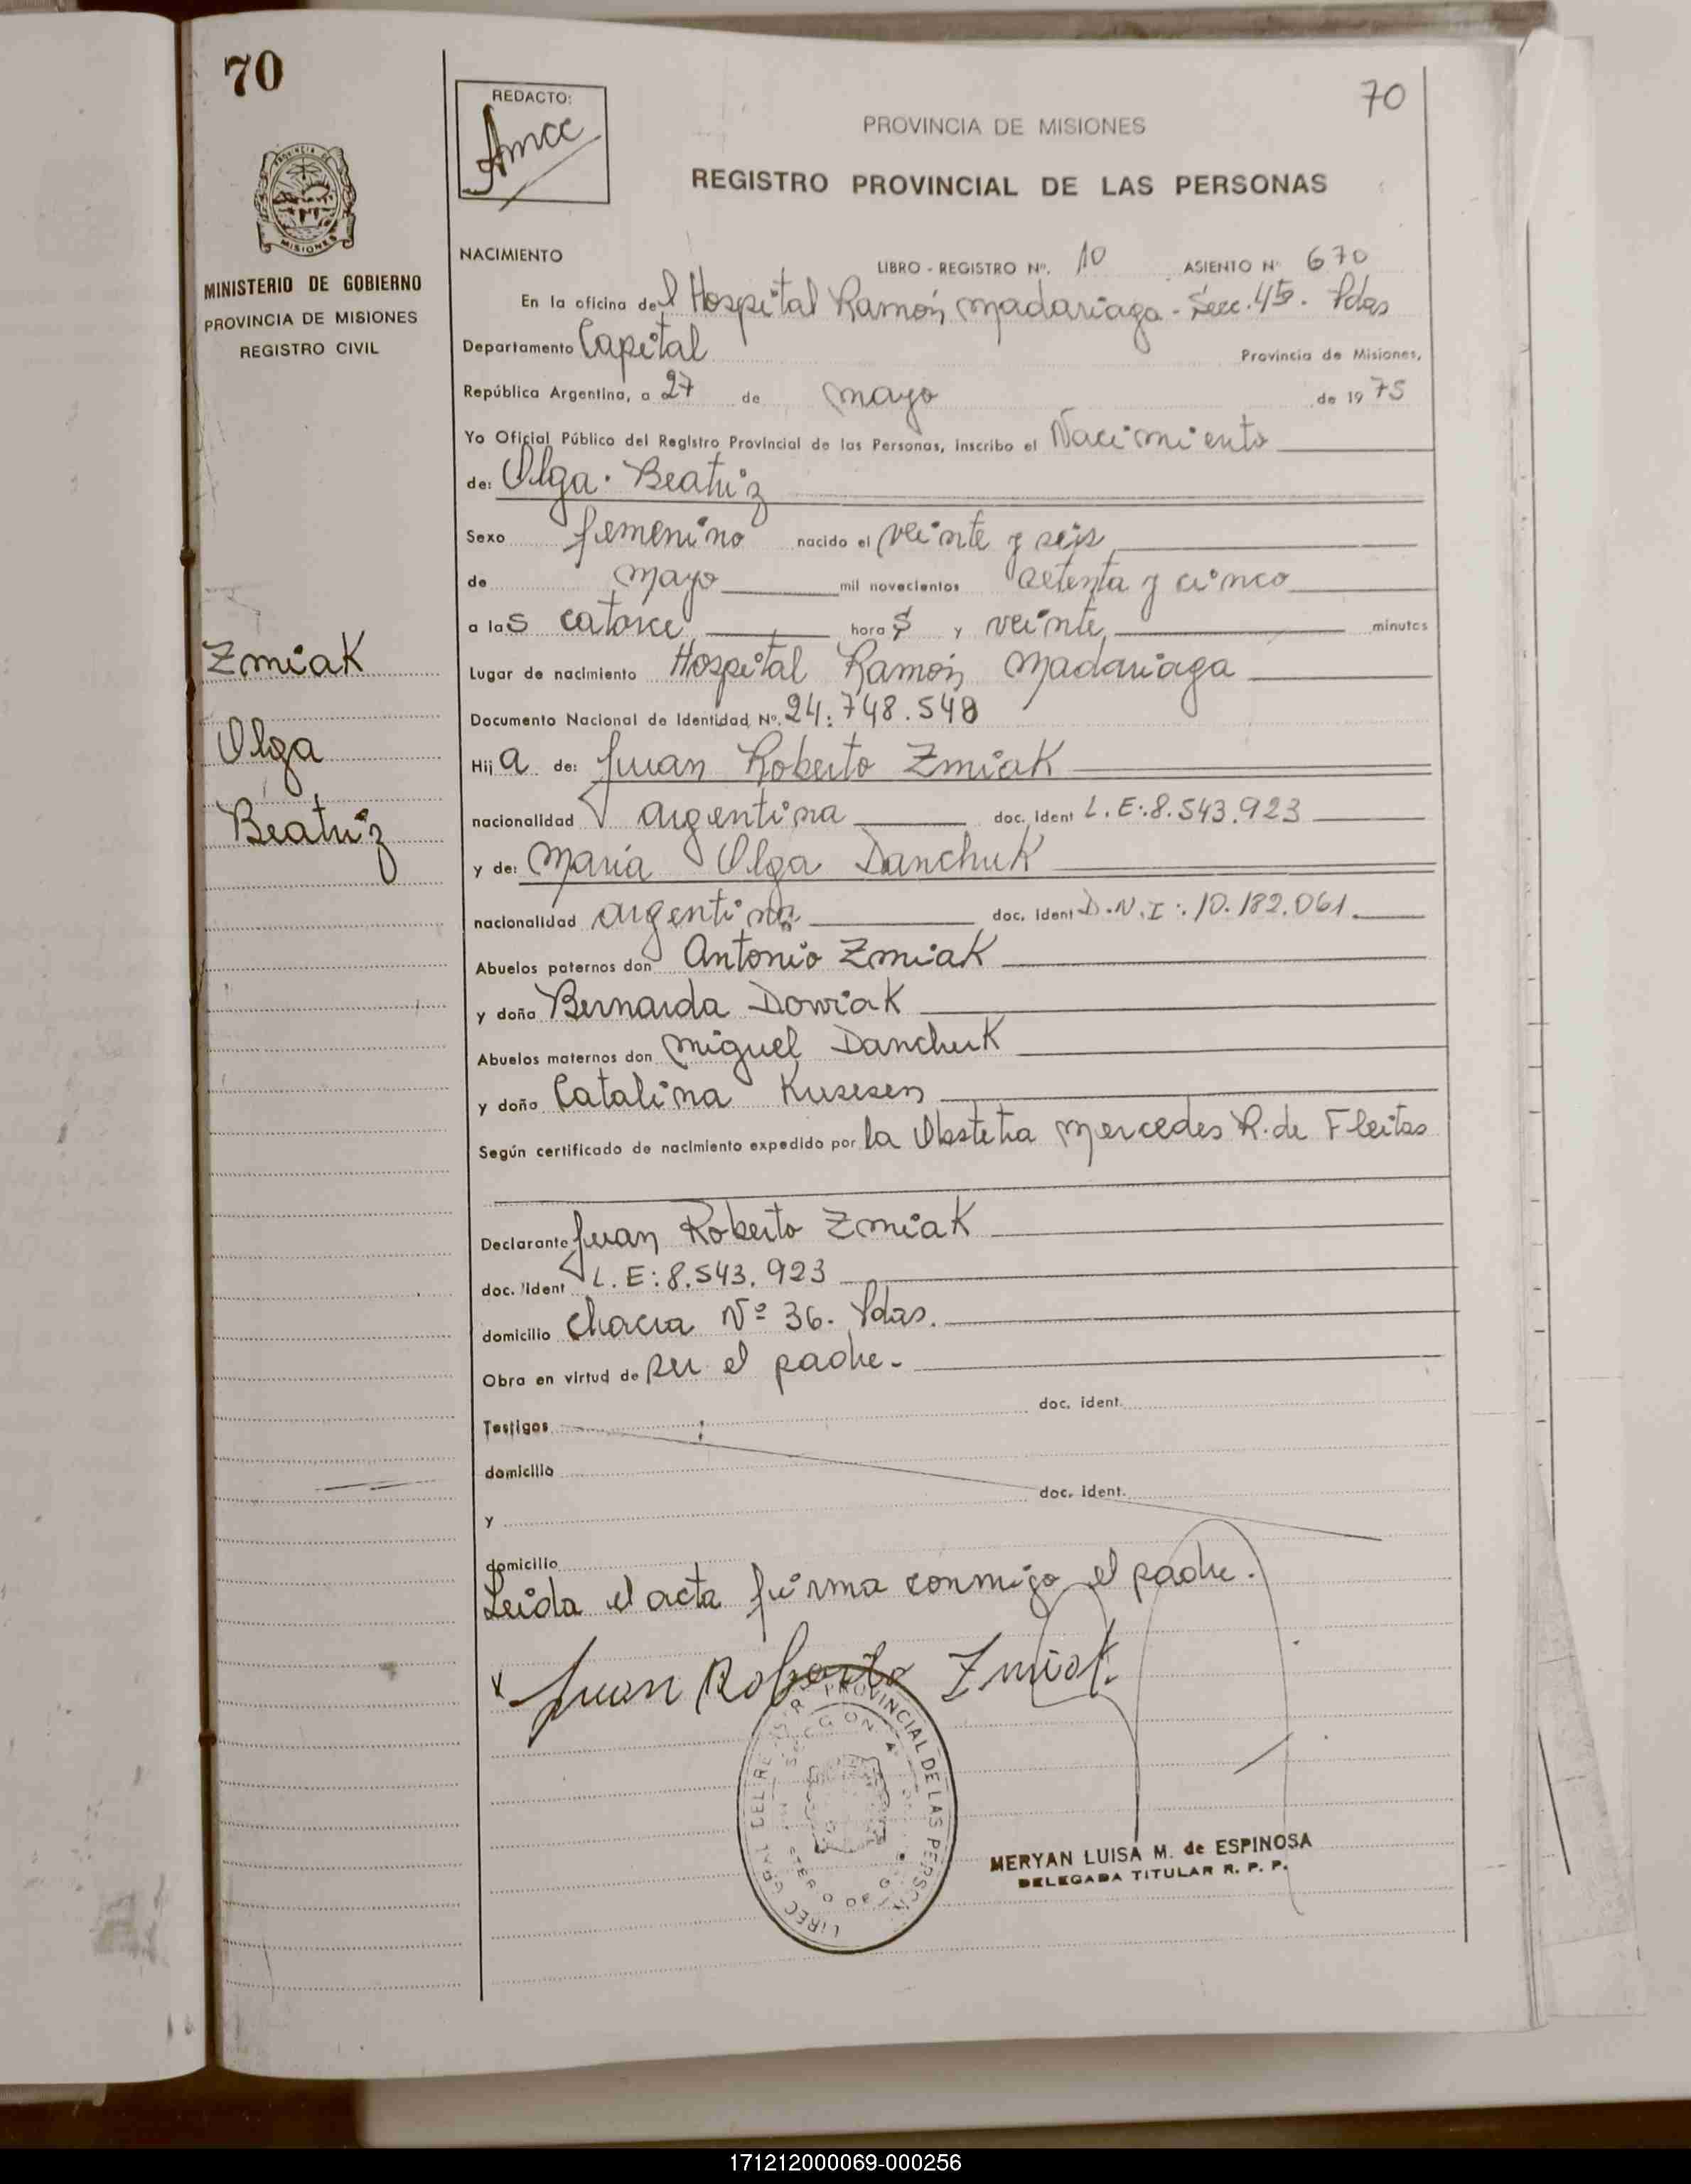 70
70
REDACTO:
PROVINCIA DE MISIONES
REGISTRO PROVINCIAL DE LAS PERSONAS
PROVINCIA DE
MISIONES
MINISTERIO DE GOBIERNO
PROVINCIA DE MISIONES
REGISTRO CIVIL
NACIMIENTO LIBRO - REGISTRO Nº. 10 ASIENTO Nº 670
En la oficina del Hospital Ramón Madariaga - Secc. 4ta. Pdas
Departamento Capital Provincia de Misiones,
República Argentina, a 27 de mayo de 1975
Yo Oficial Público del Registro Provincial de las Personas, inscribo el Nacimiento
de: Olga Beatriz
Sexo femenino nacido el veinte y seis
de mayo mil novecientos setenta y cinco
a las catorce horas y veinte minutos
Zmiak
Olga
Beatriz
Lugar de nacimiento Hospital Ramón Madariaga
Documento Nacional de Identidad, Nº. 24.748.548
Hija de: Juan Roberto Zmiak
nacionalidad argentina doc. Ident L.E:8.543.923
y de: María Olga Danchuk
nacionalidad argentina doc. Ident D.N.I:.10.182.061
Abuelos paternos don Antonio Zmiak
y doña Bernarda Dowiak
Abuelos maternos don Miguel Danchuk
y doña Catalina
Según certificado de nacimiento expedido por la Obstetra Mercedes R. de Fleitas
Declarante Juan Roberto Zmiak
doc. Ident L.E:8.543.923
domicilio Chacra Nº 36. Pdas.
Obra en virtud de ser el padre.-
doc. ident.
Testigos
domicilio
doc. ident.
y
domicilio
Leída el acta firma conmigo el padre.
Juan Roberto Zmiak
PROVINCIAL DE LAS PERSON
MERYAN LUISA M. de ESPINOSA
DELEGADA TITULAR R. P. P.
171212000069-000256